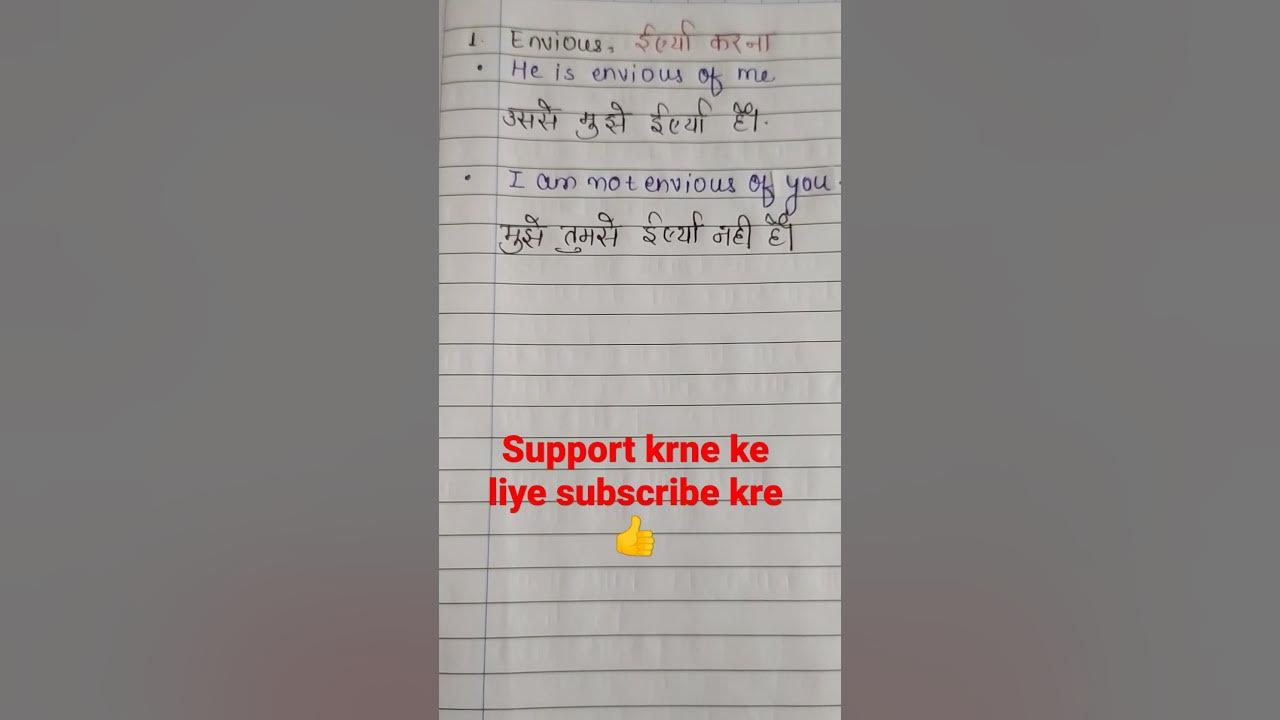 1. Envious, ईर्ष्या करना
• He is envious of me
उससे मुझे ईर्ष्या है।
• I am not envious of you.
मुझे तुमसे ईर्ष्या नही है।
Support krne ke
liye subscribe kre
👍